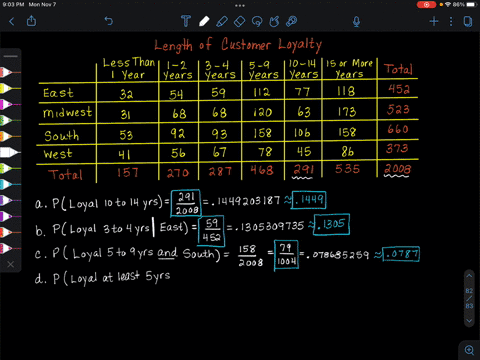 9:03 PM Mon Nov 7
86%
Length of Customer Loyalty
Less Than 1 Year 1-2 Years 3-4 Years 5-9 Years 10-14 Years 15 or More Years Total
East 32 54 59 112 77 118 452
Midwest 31 68 68 120 63 173 523
South 53 92 93 158 106 158 660
West 41 56 67 78 45 86 373
Total 157 270 287 468 291 535 2008
a. P(Loyal 10 to 14 yrs) = 291/2008 = .1449203187 ≈ .1449
b. P(Loyal 3 to 4 yrs | East) = 59/452 = .1305309735 ≈ .1305
c. P(Loyal 5 to 9 yrs and South) = 158/2008 = 79/1004 = .078685259 ≈ .0787
d. P(Loyal at least 5yrs
82
/
83